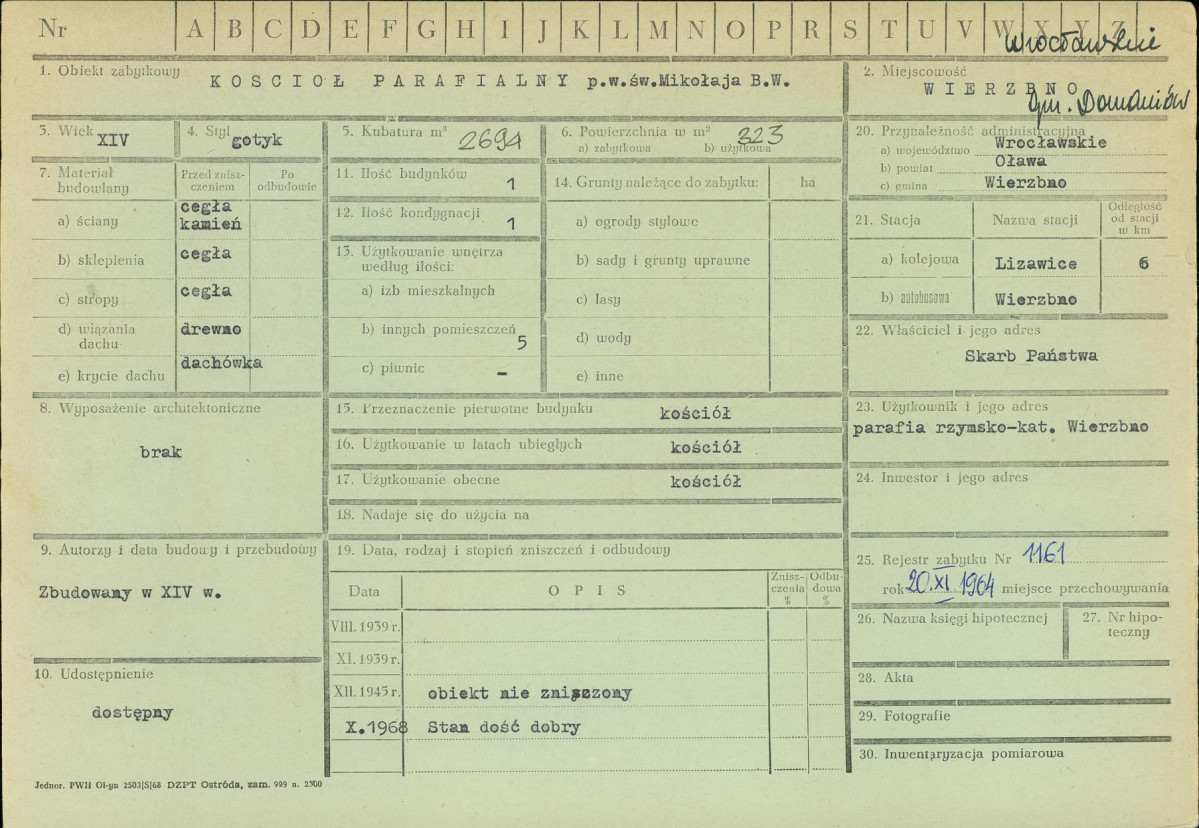 Nr A B C D E F G H I J K L M N O P R S T U V W X Y Z
Wrocławskie
1. Obiekt zabytkowy KOSCIOŁ PARAFIALNY p.w.św.Mikołaja B.W.
2. Miejscowość
WIERZBNO
gm. Domaniów
3. Wiek XIV
4. Styl gotyk
5. Kubatura m³ 2694
6. Powierzchnia w m² 323
a) zabytkowa b) użytkowa
7. Materiał budowlany
Przed zniszczeniem
Po odbudowie
a) ściany cegła kamień
b) sklepienia cegła
c) stropy cegła
d) wiązania dachu drewno
e) krycie dachu dachówka
8. Wyposażenie architektoniczne
brak
9. Autorzy i data budowy i przebudowy
Zbudowany w XIV w.
10. Udostępnienie
dostępny
11. Ilość budynków 1
12. Ilość kondygnacji 1
13. Użytkowanie wnętrza
według ilości:
a) izb mieszkalnych
b) innych pomieszczeń 5
c) piwnic –
14. Grunty należące do zabytku: ha
a) ogrody stylowe
b) sady i grunty uprawne
c) lasy
d) wody
e) inne
15. Przeznaczenie pierwotne budynku kościół
16. Użytkowanie w latach ubiegłych kościół
17. Użytkowanie obecne kościół
18. Nadaje się do użycia na
19. Data, rodzaj i stopień zniszczeń i odbudowy
Data OPIS Zniszczenia % Odbudowa %
VIII. 1939 r.
XI. 1939 r.
XII. 1945 r. obiekt nie zniszzony
X.1968 Stan dość dobry
20. Przynależność administracyjna
a) województwo Wrocławskie
b) powiat Oława
c) gmina Wierzbno
21. Stacja Nazwa stacji Odległość od stacji w km
a) kolejowa Lizawice 6
b) autobusowa Wierzbno
22. Właściciel i jego adres
Skarb Państwa
23. Użytkownik i jego adres
parafia rzymsko-kat. Wierzbno
24. Inwestor i jego adres
25. Rejestr zabytku Nr 1161
rok 20.XI 1964 miejsce przechowywania
26. Nazwa księgi hipotecznej
27. Nr hipoteczny
28. Akta
29. Fotografie
30. Inwentaryzacja pomiarowa
Jednor. PWH Ol-yn 2503|S|68 DZPT Ostróda, zam. 999 n. 2500